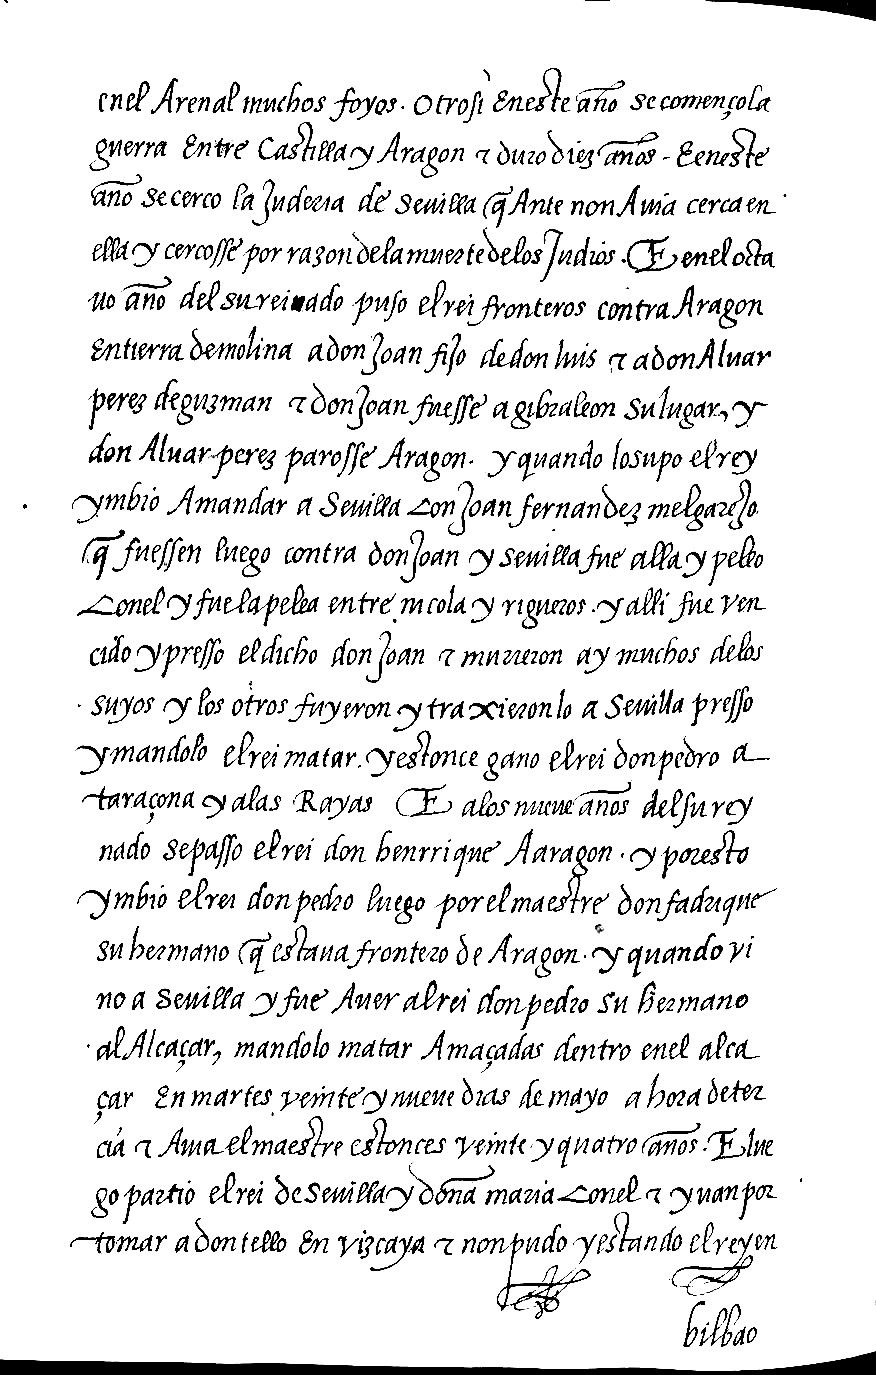 enel Arenal muchos foyos. Otrosi Eneste año se començola
guerra Entre Castilla y Aragon τ duro diez años - E eneste
año se cerco la Juderia de Sevilla q̃ Ante non Avia cerca en
ella y cercosse por razon dela muerte delos Judios. E en el octa
uo año del su reinado puso el rei fronteros contra Aragon
En tierra de molina a don Joan fijo de don luis τ a don Aluar
perez de guzman τ don Joan fuesse a gibraleon su lugar, y
don Aluar perez parosse Aragon. y quando lo supo el rey
ymbio A mandar a Sevilla Con Joan fernandez melgarejo
q̃ fuessen luego contra don Joan y Sevilla fue alla y peleo
Con el y fue la pelea entre nicola y rigueros. y alli fue ven
cido y presso el dicho don Joan τ murieron ay muchos delos
suyos y los otros fuyeron y traxieronlo a Sevilla presso
y mandolo el rei matar. y estonce gano el rei don pedro a
taraçona y alas Rayas E alos nueue años del su rey
nado se passo el rei don henrrique A aragon. y por esto
ymbio el rei don pedro luego por el maestre don fadrique
su hermano q̃ estaua frontero de Aragon. y quando vi
no a Sevilla y fue A ver al rei don pedro su hermano
al Alcaçar, mandolo matar A maçadas dentro en el alca
çar En martes veinte y nueue dias de mayo a hora de ter
cia τ Avia el maestre estonces veinte y quatro años. E lue
go partio el rei de Sevilla y doña maria Conel τ yuan por
tomar a don tello En vizcaya τ non pudo y estando el rey en
bilbao